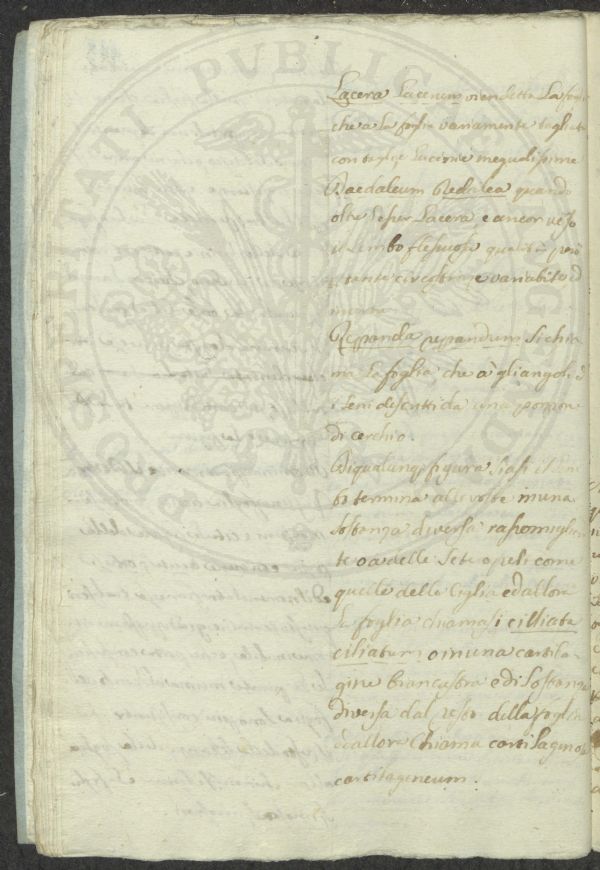 Lacera Lacerum vien detta La foglia
che a La foglia variamente tagliata
con taglie Lacinie inegualissime
Daedaleum Dedalea quando
oltre L'esser Lacera e ancor verso
il Lembo flessuosa qualità però
stante circostanze variabile ed
incerta
Repanda repandum si chia
ma La foglia che à gli angoli e
i seni descritti da una porzion
di cerchio.
Di qualunq. figura siasi il Lem
bo termina alle volte in una
sostanza diversa rasomiglian
te o a delle sete o peli come
quelle delle Ciglia ed allora
La foglia chiamasi cilliata
ciliatum, o in una cartila
gine biancastra e di sostanza
diversa dal resto della foglia
ed allora chiama cartilaginosa
cartilagineum.
PUBLIC